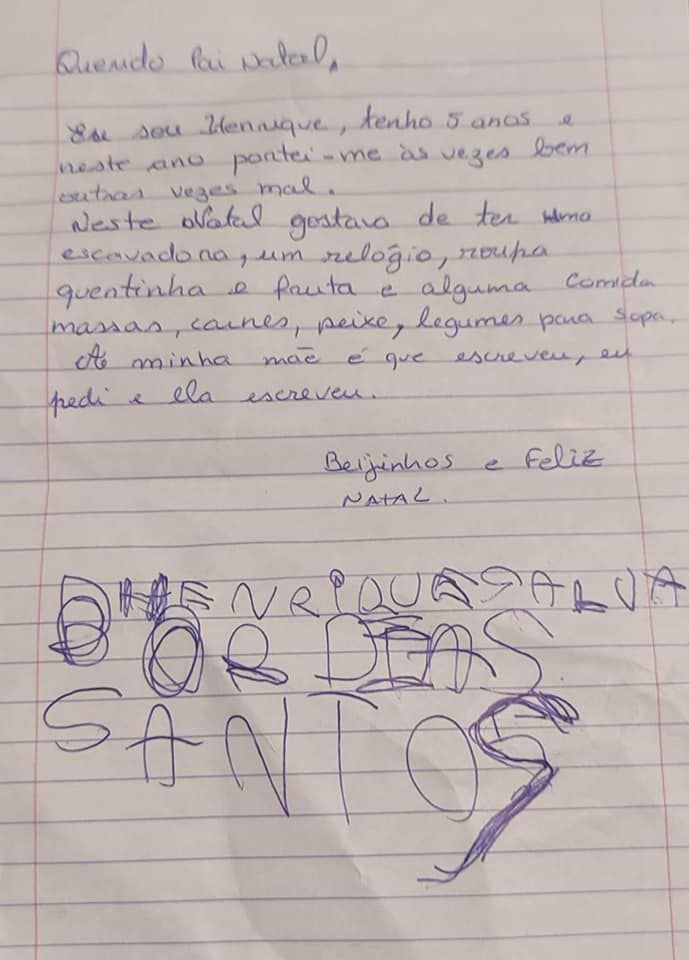 Querido Pai Natal,
Eu sou Henrique, tenho 5 anos e
neste ano portei-me às vezes bem
outras vezes mal.
Neste Natal gostava de ter uma
escavadora, um relógio, roupa
quentinha e fruta e alguma comida
massas, carnes, peixe, legumes para sopa.
A minha mãe é que escreveu, eu
pedi e ela escreveu.
Beijinhos e Feliz
NATAL.
HENRIQUE SALVA
DOR DEAS
SANTOS